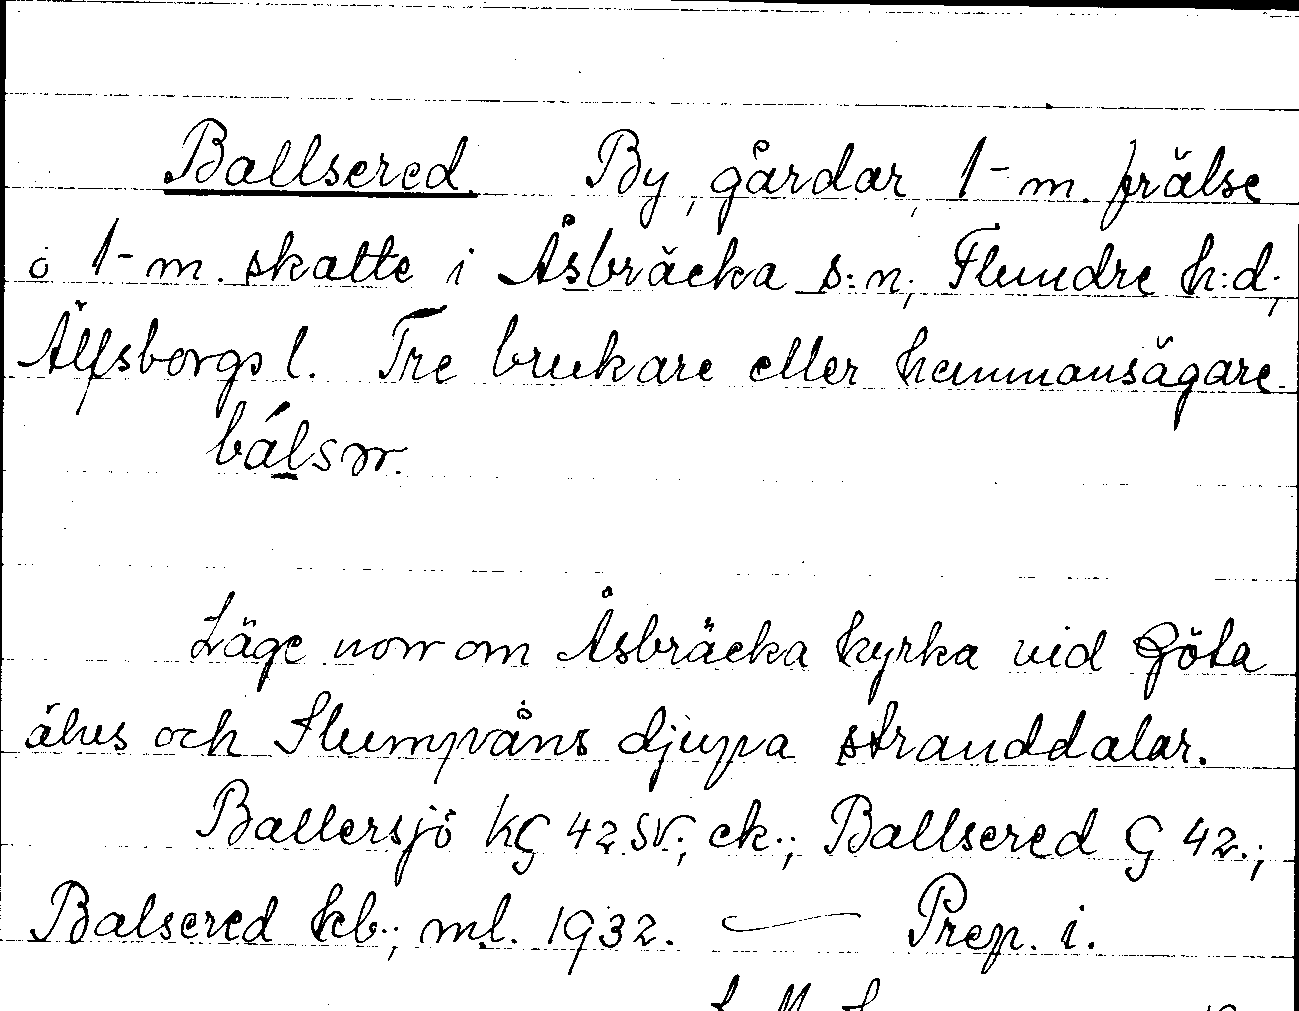 Ballsered. By, gårdar, 1-m. frälse
o 1-m. skatte i Åsbräcka s:n, Flundre h:d,
Älfsborgs l. Tre brukare eller hemmansägare.
Läge norr om Åsbräcka kyrka vid Göta
älvs och Slumpåns djupa stranddalar.
Ballersjö KG 42 SV.; ek.; Ballsered G 42.;
Balsered kb.; ml. 1932. — Prep. i.